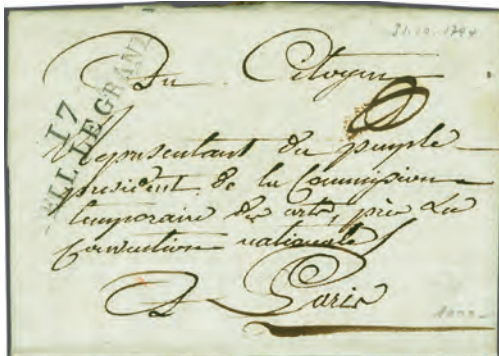 31.10.1794
17
ELL LE GRAND
Au Citoyen
Representant du peuple
president de la Commission
temporaire des arts, près La
Convention nationale
A Paris